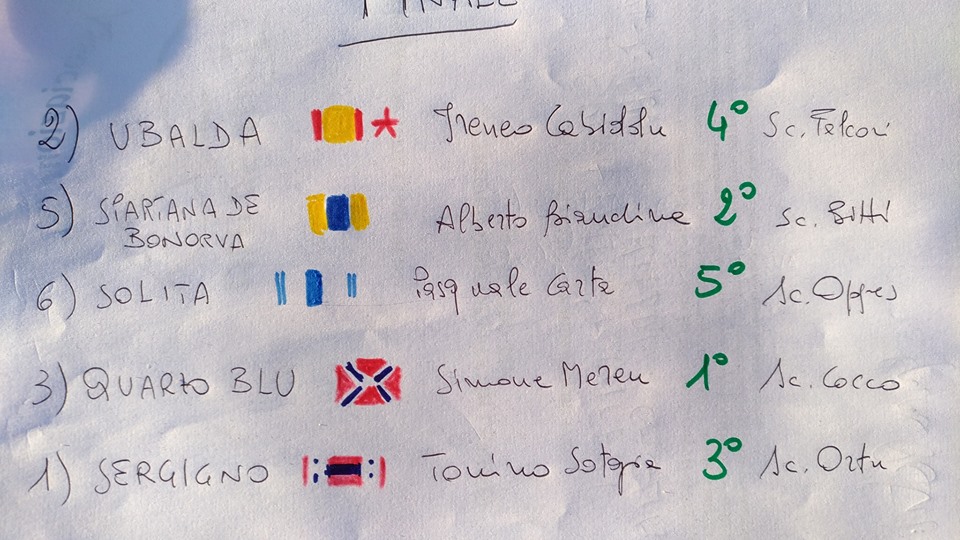 FINALE
2) UBALDA Ireneo Cabiddu 4° Sc. Falcoi
5) SPARTANA DE BONORVA Alberto Biandina 2° Sc. Bitti
6) SOLITA Pasquale Carta 5° Sc. Oppes
3) QUARTO BLU Simone Mereu 1° Sc. Cocco
1) SERGIGNO Tonino 3° Sc. Ortu